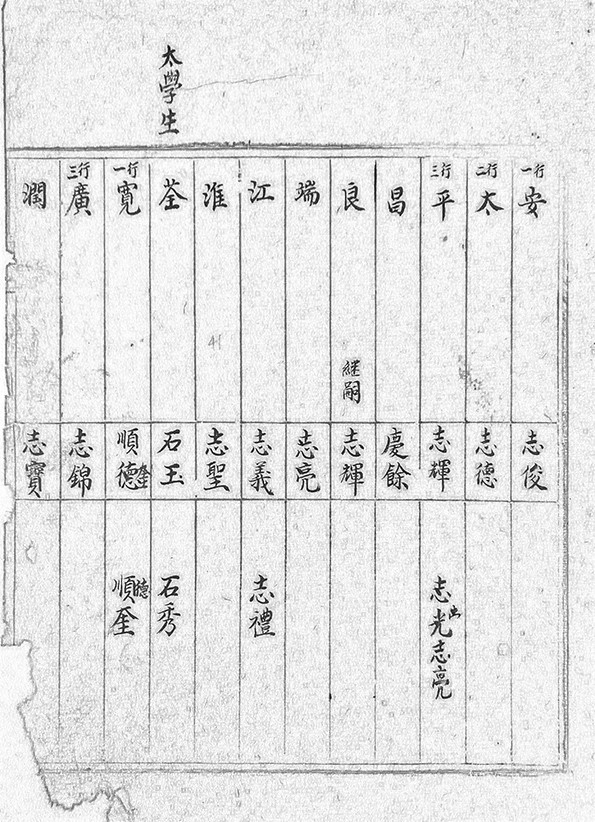 太學生
行一 安 志俊
行二 太 志德
行三 平 志輝 志光出 志亮
昌 慶餘
良 繼嗣 志輝
端 志亮
江 志義 志禮
淮 志聖
荃 石玉 石秀
行一 寬 順德奎 順奎德
行三 廣 志錦
潤 志寶